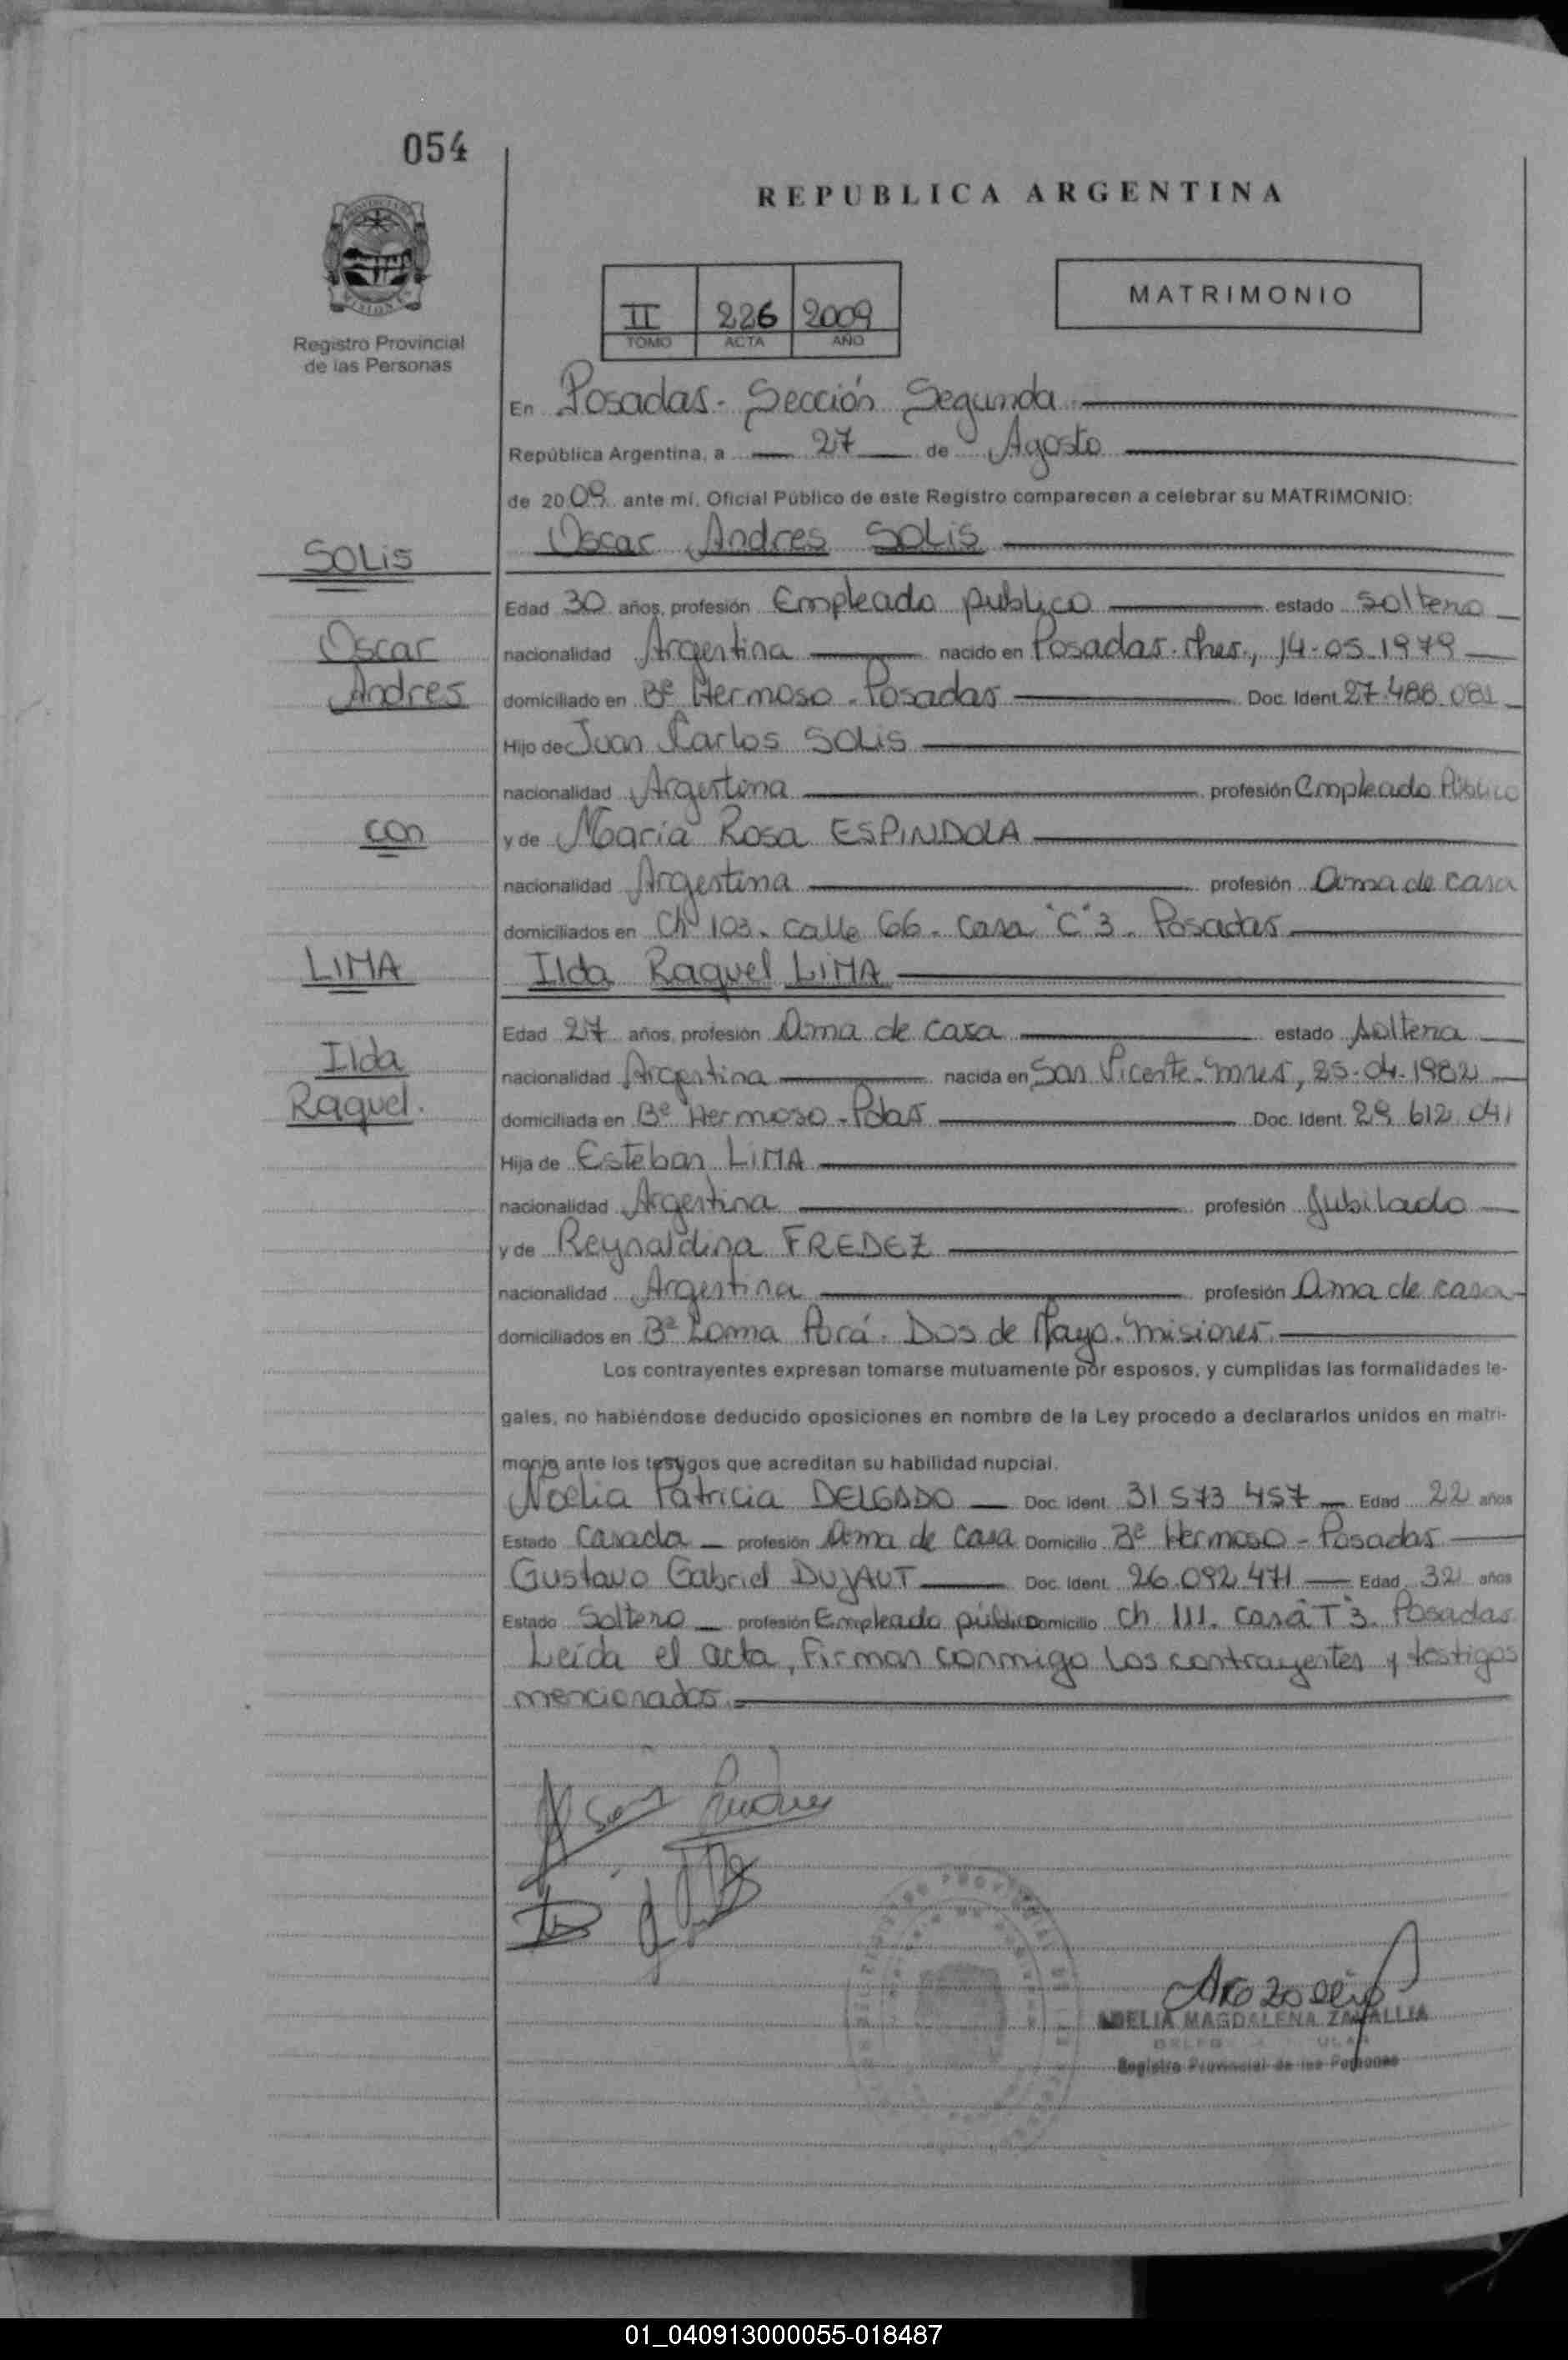 054
REPUBLICA ARGENTINA
Registro Provincial
de las Personas
II 226 2009
TOMO ACTA AÑO
MATRIMONIO
En Posadas - Sección Segunda
República Argentina, a 27 de Agosto
de 2009 ante mí, Oficial Público de este Registro comparecen a celebrar su MATRIMONIO:
SOLIS
Oscar Andres SOLIS
Edad 30 años, profesión Empleado publico estado soltero
Oscar
nacionalidad Argentina nacido en Posadas. Mnes., 14-05-1979
Andres
domiciliado en Bº Hermoso - Posadas Doc. Ident. 27.488.081
Hijo de Juan Carlos SOLIS
nacionalidad Argentina profesión Empleado Público
con
y de Maria Rosa ESPINDOLA
nacionalidad Argentina profesión Ama de casa
domiciliados en Ch 103. Calle 66. Casa "C" 3. Posadas
LIMA
Ilda Raquel LIMA
Edad 27 años, profesión Ama de casa estado soltera
Ilda
nacionalidad Argentina nacida en San Vicente. Mnes, 25-04-1982
Raquel.
domiciliada en Bº Hermoso - Pdas Doc. Ident. 29 612 041
Hija de Esteban LIMA
nacionalidad Argentina profesión Jubilado
y de Reynaldina FREDEZ
nacionalidad Argentina profesión Ama de casa
domiciliados en Bº Loma Porá. Dos de Mayo. Misiones.
Los contrayentes expresan tomarse mutuamente por esposos, y cumplidas las formalidades le-
gales, no habiéndose deducido oposiciones en nombre de la Ley procedo a declararlos unidos en matri-
monio ante los testigos que acreditan su habilidad nupcial.
Noelia Patricia DELGADO Doc. Ident. 31 573 457 Edad 22 años
Estado Casada profesión Ama de Casa Domicilio Bº Hermoso - Posadas
Gustavo Gabriel DUJAUT Doc. Ident. 26.092.471 Edad 32 años
Estado Soltero profesión Empleado público Domicilio Ch 111. Casa "T" 3. Posadas
Leída el acta, Firman conmigo los contrayentes y testigos
mencionados.
ADELIA MAGDALENA ZAVALLIA
Registro Provincial de las Personas
01_040913000055-018487